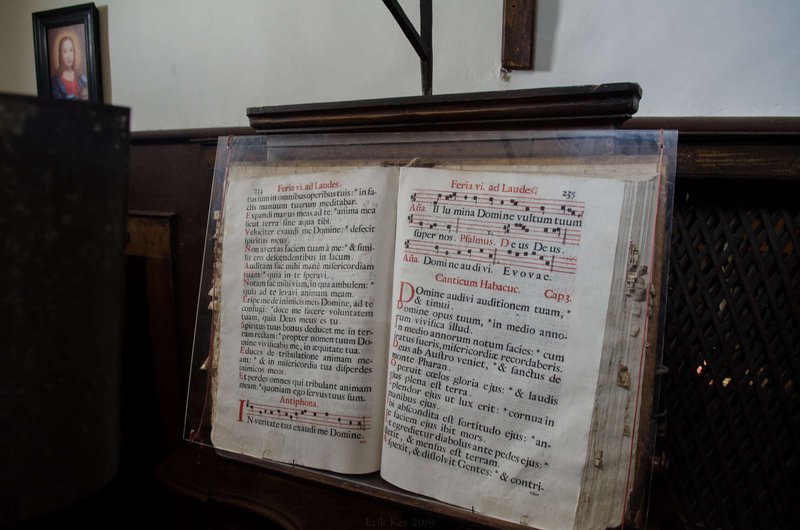 234 Feria vi. ad Laudes.
tus sum in omnibus operibus tuis: * in fa-
ctis manuum tuarum meditabar.
Expandi manus meas ad te: * anima mea
sicut terra sine aqua tibi.
Velociter exaudi me Domine: * defecit
spiritus meus.
Non avertas faciem tuam à me: * & simi-
lis ero descendentibus in lacum.
Auditam fac mihi mane misericordiam
tuam: * quia in te speravi.
Notam fac mihi viam, in qua ambulem: *
quia ad te levavi animam meam.
Eripe me de inimicis meis Domine, ad te
confugi: * doce me facere voluntatem
tuam, quia Deus meus es tu.
Spiritus tuus bonus deducet me in ter-
ram rectam: * propter nomen tuum Do-
mine vivificabis me, in æquitate tua.
Educes de tribulatione animam me-
am: * & in misericordia tua disperdes
inimicos meos.
Et perdes omnes qui tribulant animam
meam: * quoniam ego servus tuus sum.
Antiphona.
IN veritate tua exaudi me Domine.
Feria vi. ad Laudes. 235
Aña. Il lu mina Domine vultum tuum
super nos. Psalmus. Deus Deus.
Aña. Domine au di vi. E v o v a e.
Canticum Habacuc. Cap 3.
Domine audivi auditionem tuam, *
& timui.
Domine opus tuum, * in medio anno-
rum vivifica illud.
In medio annorum notum facies: * cum
iratus fueris, misericordiæ recordaberis.
Deus ab Austro veniet, * & sanctus de
monte Pharan.
Operuit cœlos gloria ejus: * & laudis
ejus plena est terra.
Splendor ejus ut lux erit: * cornua in
manibus ejus.
Ibi abscondita est fortitudo ejus: * an-
te faciem ejus ibit mors.
Et egredietur diabolus ante pedes ejus: *
stetit, & mensus est terram.
Aspexit, & dissolvit Gentes: * & contri-
Erik Kes 2019